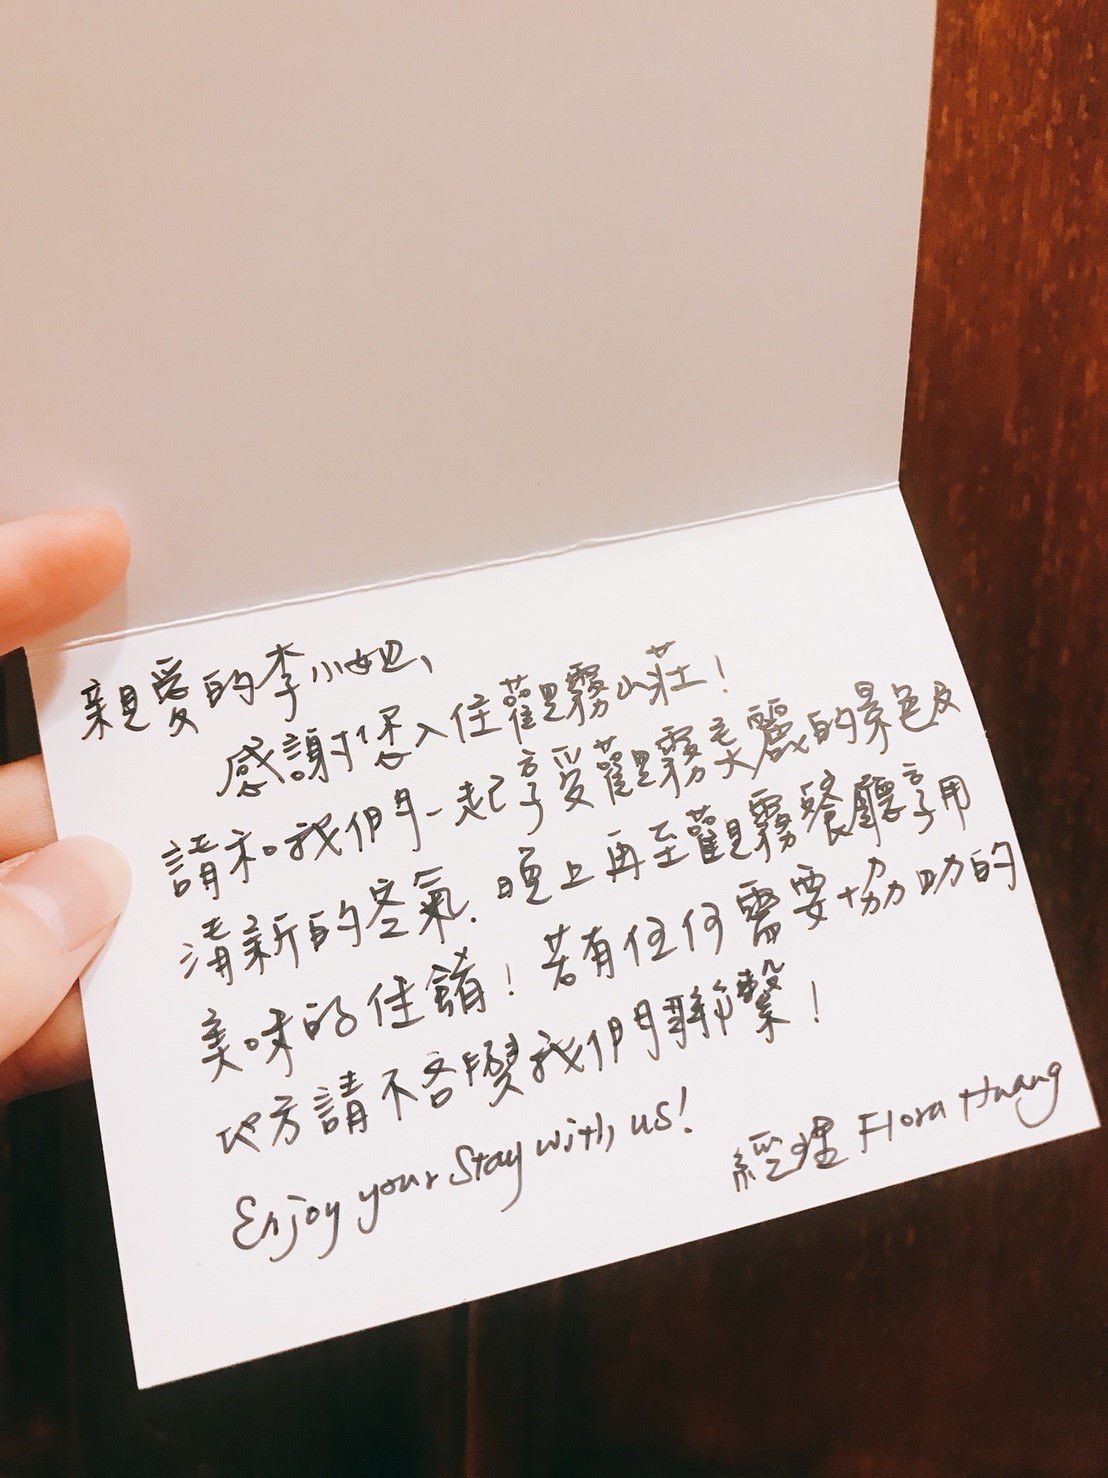 親愛的李小姐、
感謝您入住觀霧山莊!
請和我們一起享受觀霧美麗的景色及
清新的空氣.晚上再至觀霧餐廳享用
美味的佳餚!若有任何需要協助的
地方請不吝與我們聯繫!
Enjoy your Stay with us!
經理 Flora Huang